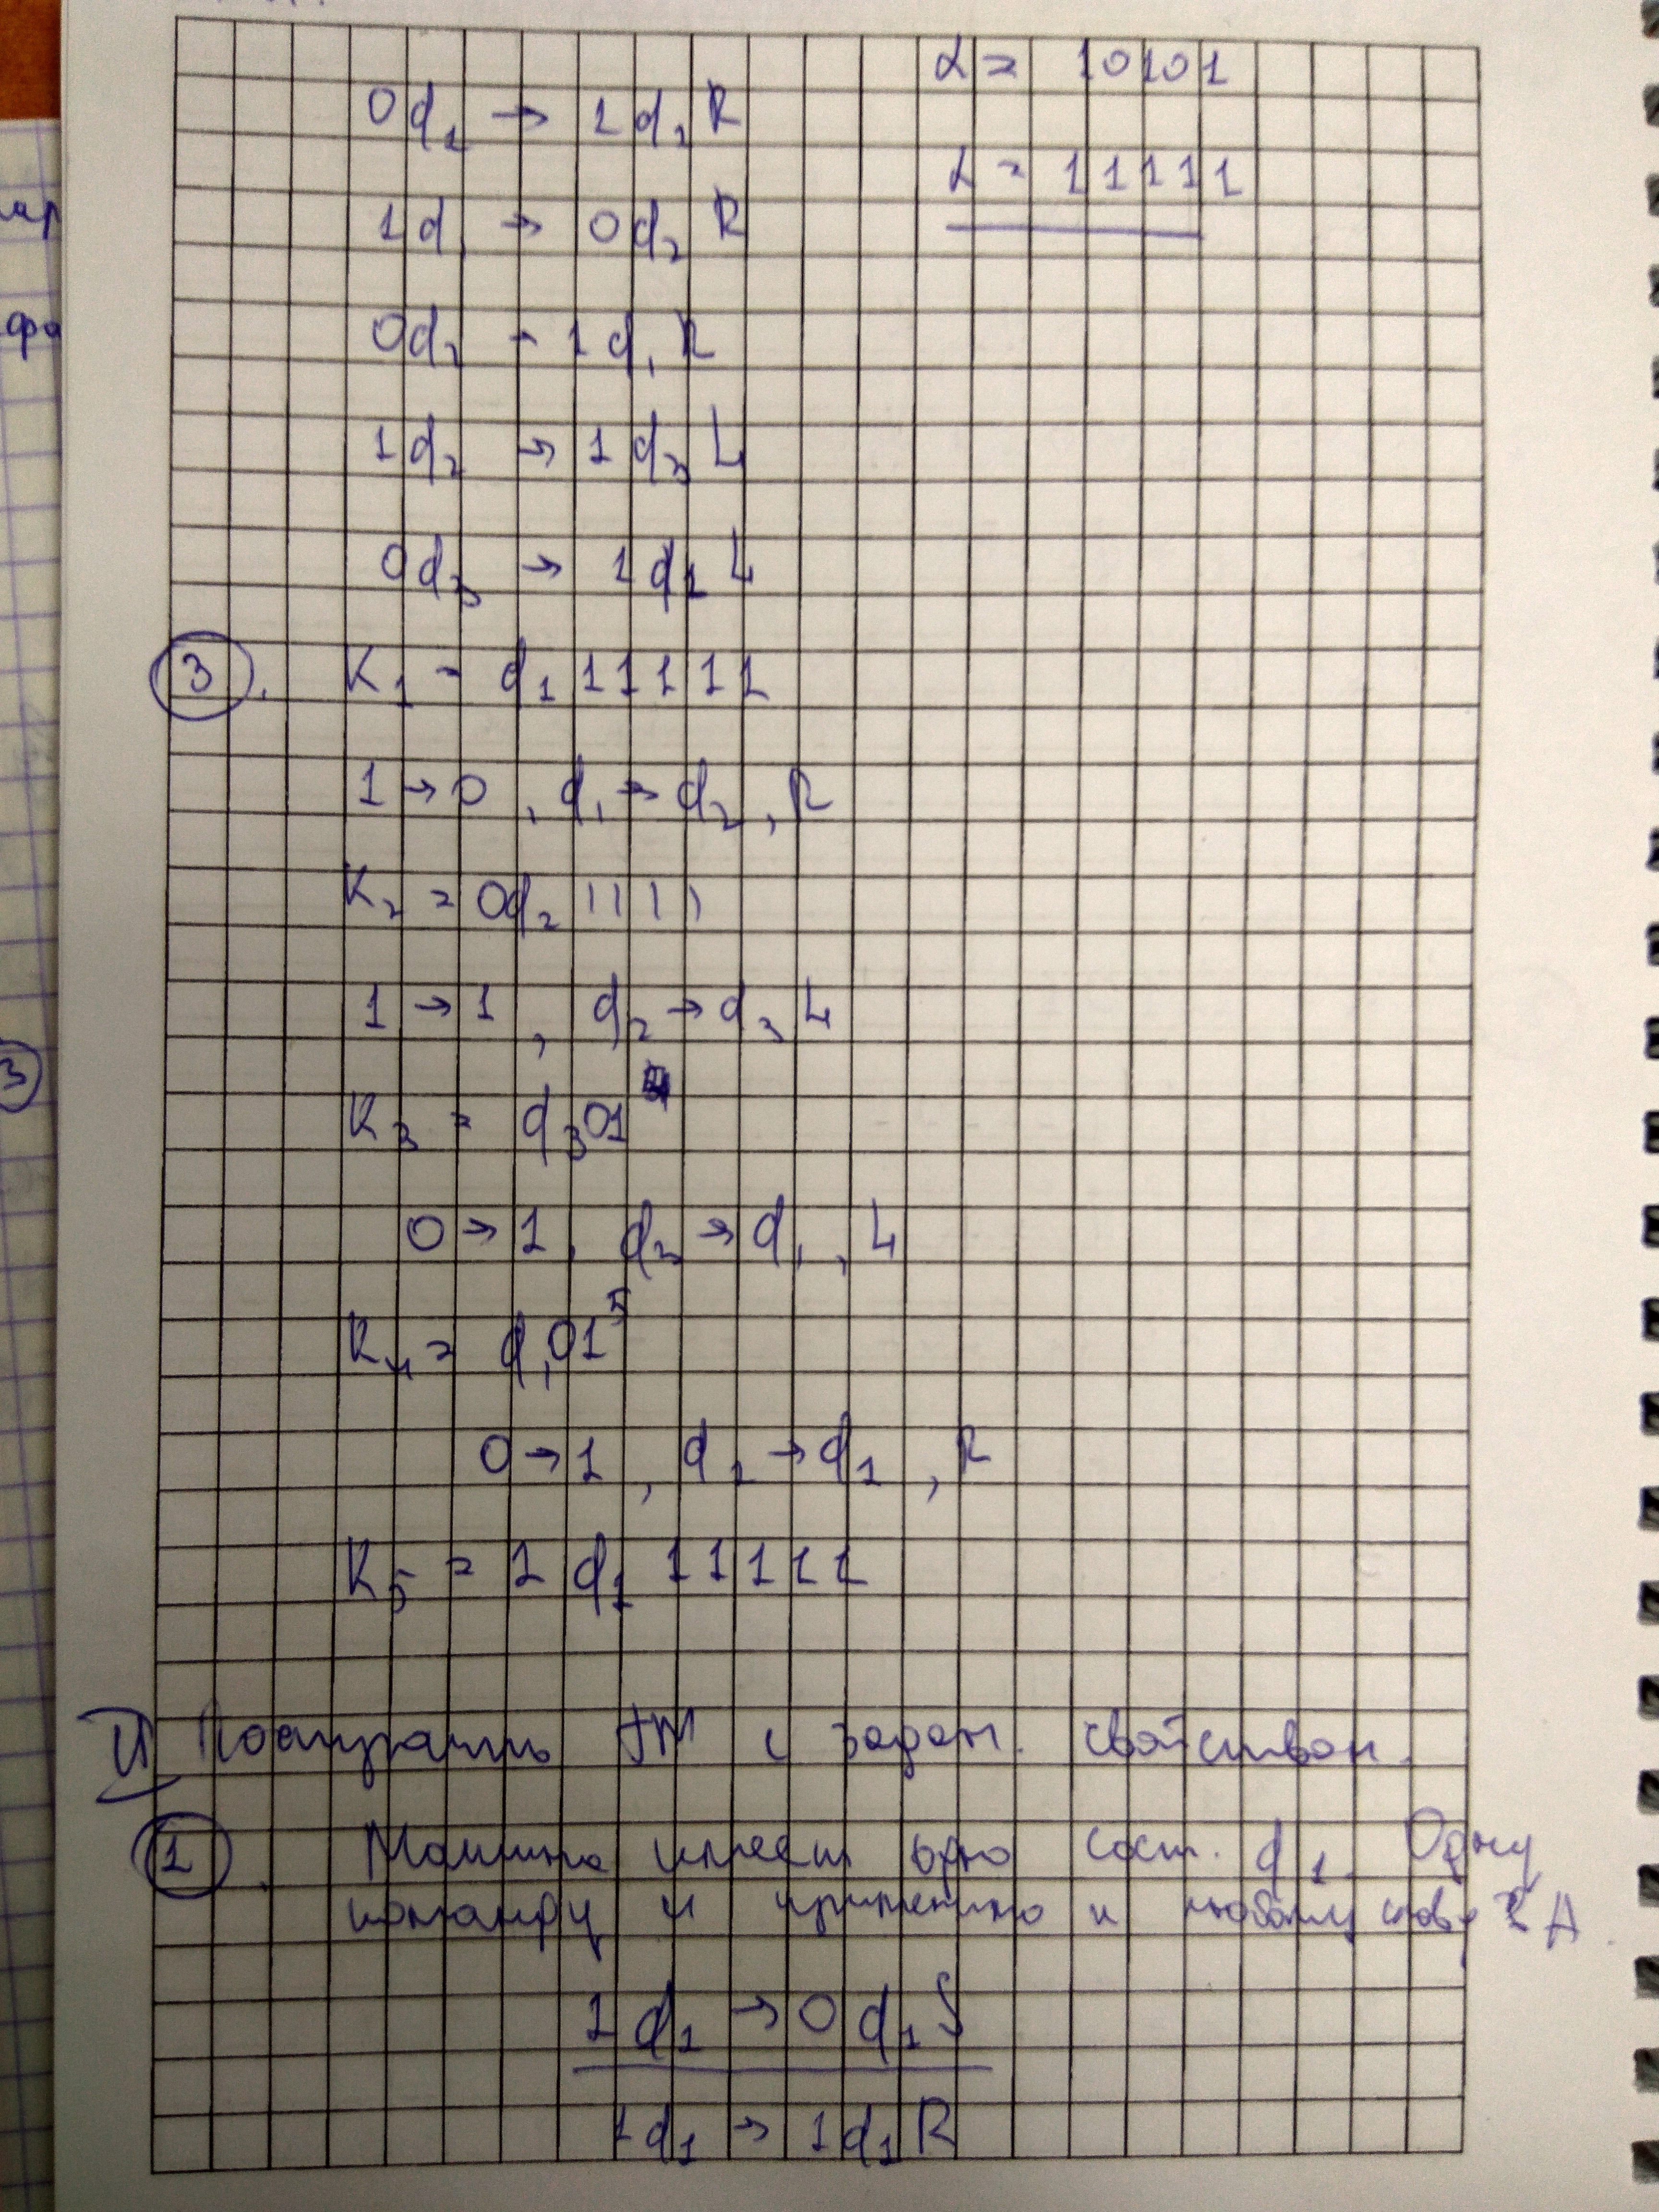 α = 10101
0q₁ → 1q₁R
α = 11111
1q → 0q₂ R
0q₂ - 1q₁R
1q₂ → 1q₃ L
0q₃ → 1q₁ L
3. K₁ = q₁11111
1 → 0, q₁ → q₂, R
K₂ = 0q₂ 1111
1 → 1, q₂ → q₃ L
K₃ = q₃01
0 → 1, q₃ → q₁, L
K₄ = q₁01⁵
0 → 1, q₁ → q₁, R
K₅ = 1 q₁ 11111
II Построить ТМ с задан. свойством.
1. Машина имеет одно сост. q₁. Одну
команду и применимо к любому слову в A.
1q₁ → 0q₁S
1q₁ → 1q₁R
ар
фо
3